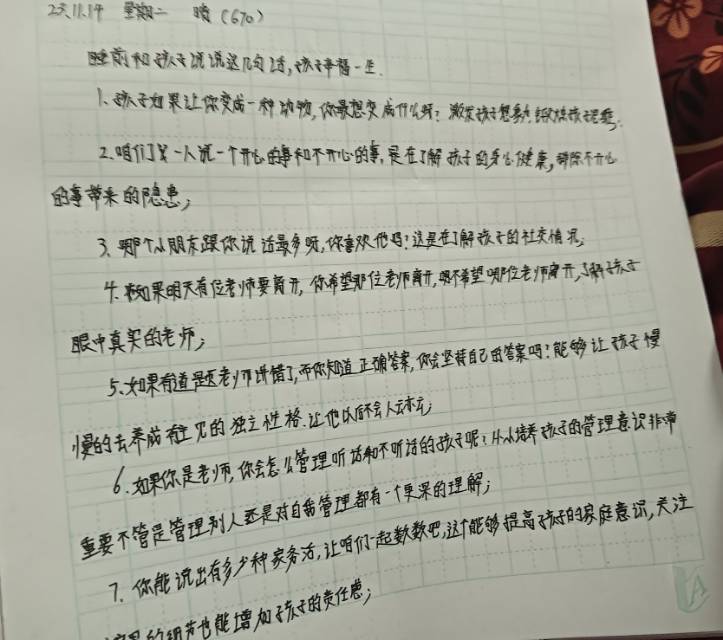 23.11.14 星期二 晴（670）
睡前和孩子说说这几句话，孩子幸福一生.
1. 孩子如果让你变成一种动物，你最想变成什么呀？激发孩子想象力，锻炼孩子思维；
2. 咱们又一人说一个开心的事和不开心的事，是在了解孩子的身心健康，排除不开心
的事带来的隐患；
3. 哪个小朋友跟你说话最多呀，你喜欢他吗？这是在了解孩子的社交情况；
4. 如果明天有位老师要离开，你希望那位老师离开，哪不希望哪位老师离开，了解孩子
眼中真实的老师；
5. 如果有道题老师讲错了，而你知道正确答案，你会坚持自己的答案吗？能够让孩子慢
慢的去养成有主见的独立性格.让他以后不会人云亦云；
6. 如果你是老师，你会怎么管理听话和不听话的孩子呢？从小培养孩子的管理意识非常
重要不管是管理别人还是对自我管理都有一个更深的理解；
7. 你能说出有多少种家务活，让咱们一起数数吧，这个能够提高孩子的家庭意识，关注
的细节也能增加孩子的责任感；